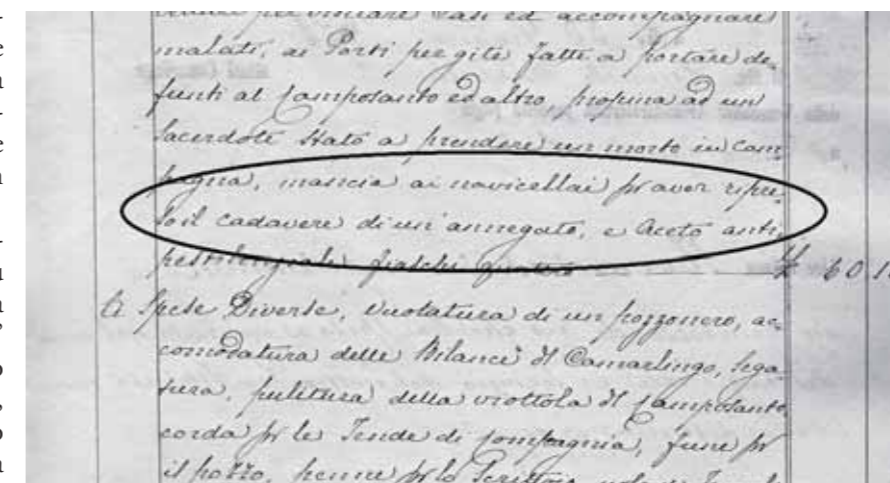 per visitare Casi ed accompagnare
malati, ai Porti per gite fatte a portare de=
funti al Camposanto ed altro, propina ad un
Sacerdote stato a prendere un morto in Cam=
pagna, mancia ai navicellai pr aver ripre=
so il cadavere di un'annegato, e Aceto anti=
pestilenziale fiaschi quattro £ 60
a Spese Diverse, vuotatura di un pozzonero, ac=
comodatura delle Bilance del Camarlingo, sega
tura, pulitura della viottola del Camposanto,
corda pr le Tende di Compagnia, fune pr
il pozzo, penne pr lo Scrittoio